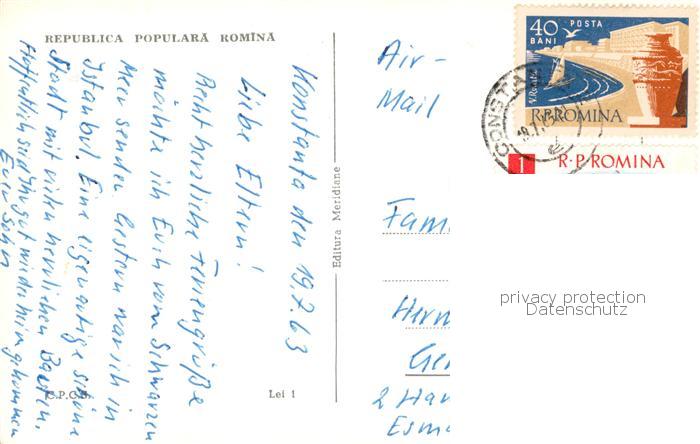 REPUBLICA POPULARĂ ROMÎNĂ
Konstanta den 19.7.63
Liebe Eltern!
Recht herzliche Feriengrüße
möchte ich Euch vom Schwarzen
Meer senden. Gestern war ich in
Istanbul. Eine eigenartige schöne
Stadt mit vielen herrlichen Bauten.
Hoffentlich seid Ihr gut wieder heimgekommen
Euer Sohn
C.P.C.S.
Lei 1
Editura Meridiane
Air-
Mail
Fam
Herm
Ger
2 Ham
Esma
40
BANI
POSTA
R.P.ROMINA
CONSTA
1
R·P·ROMINA
privacy protection
Datenschutz